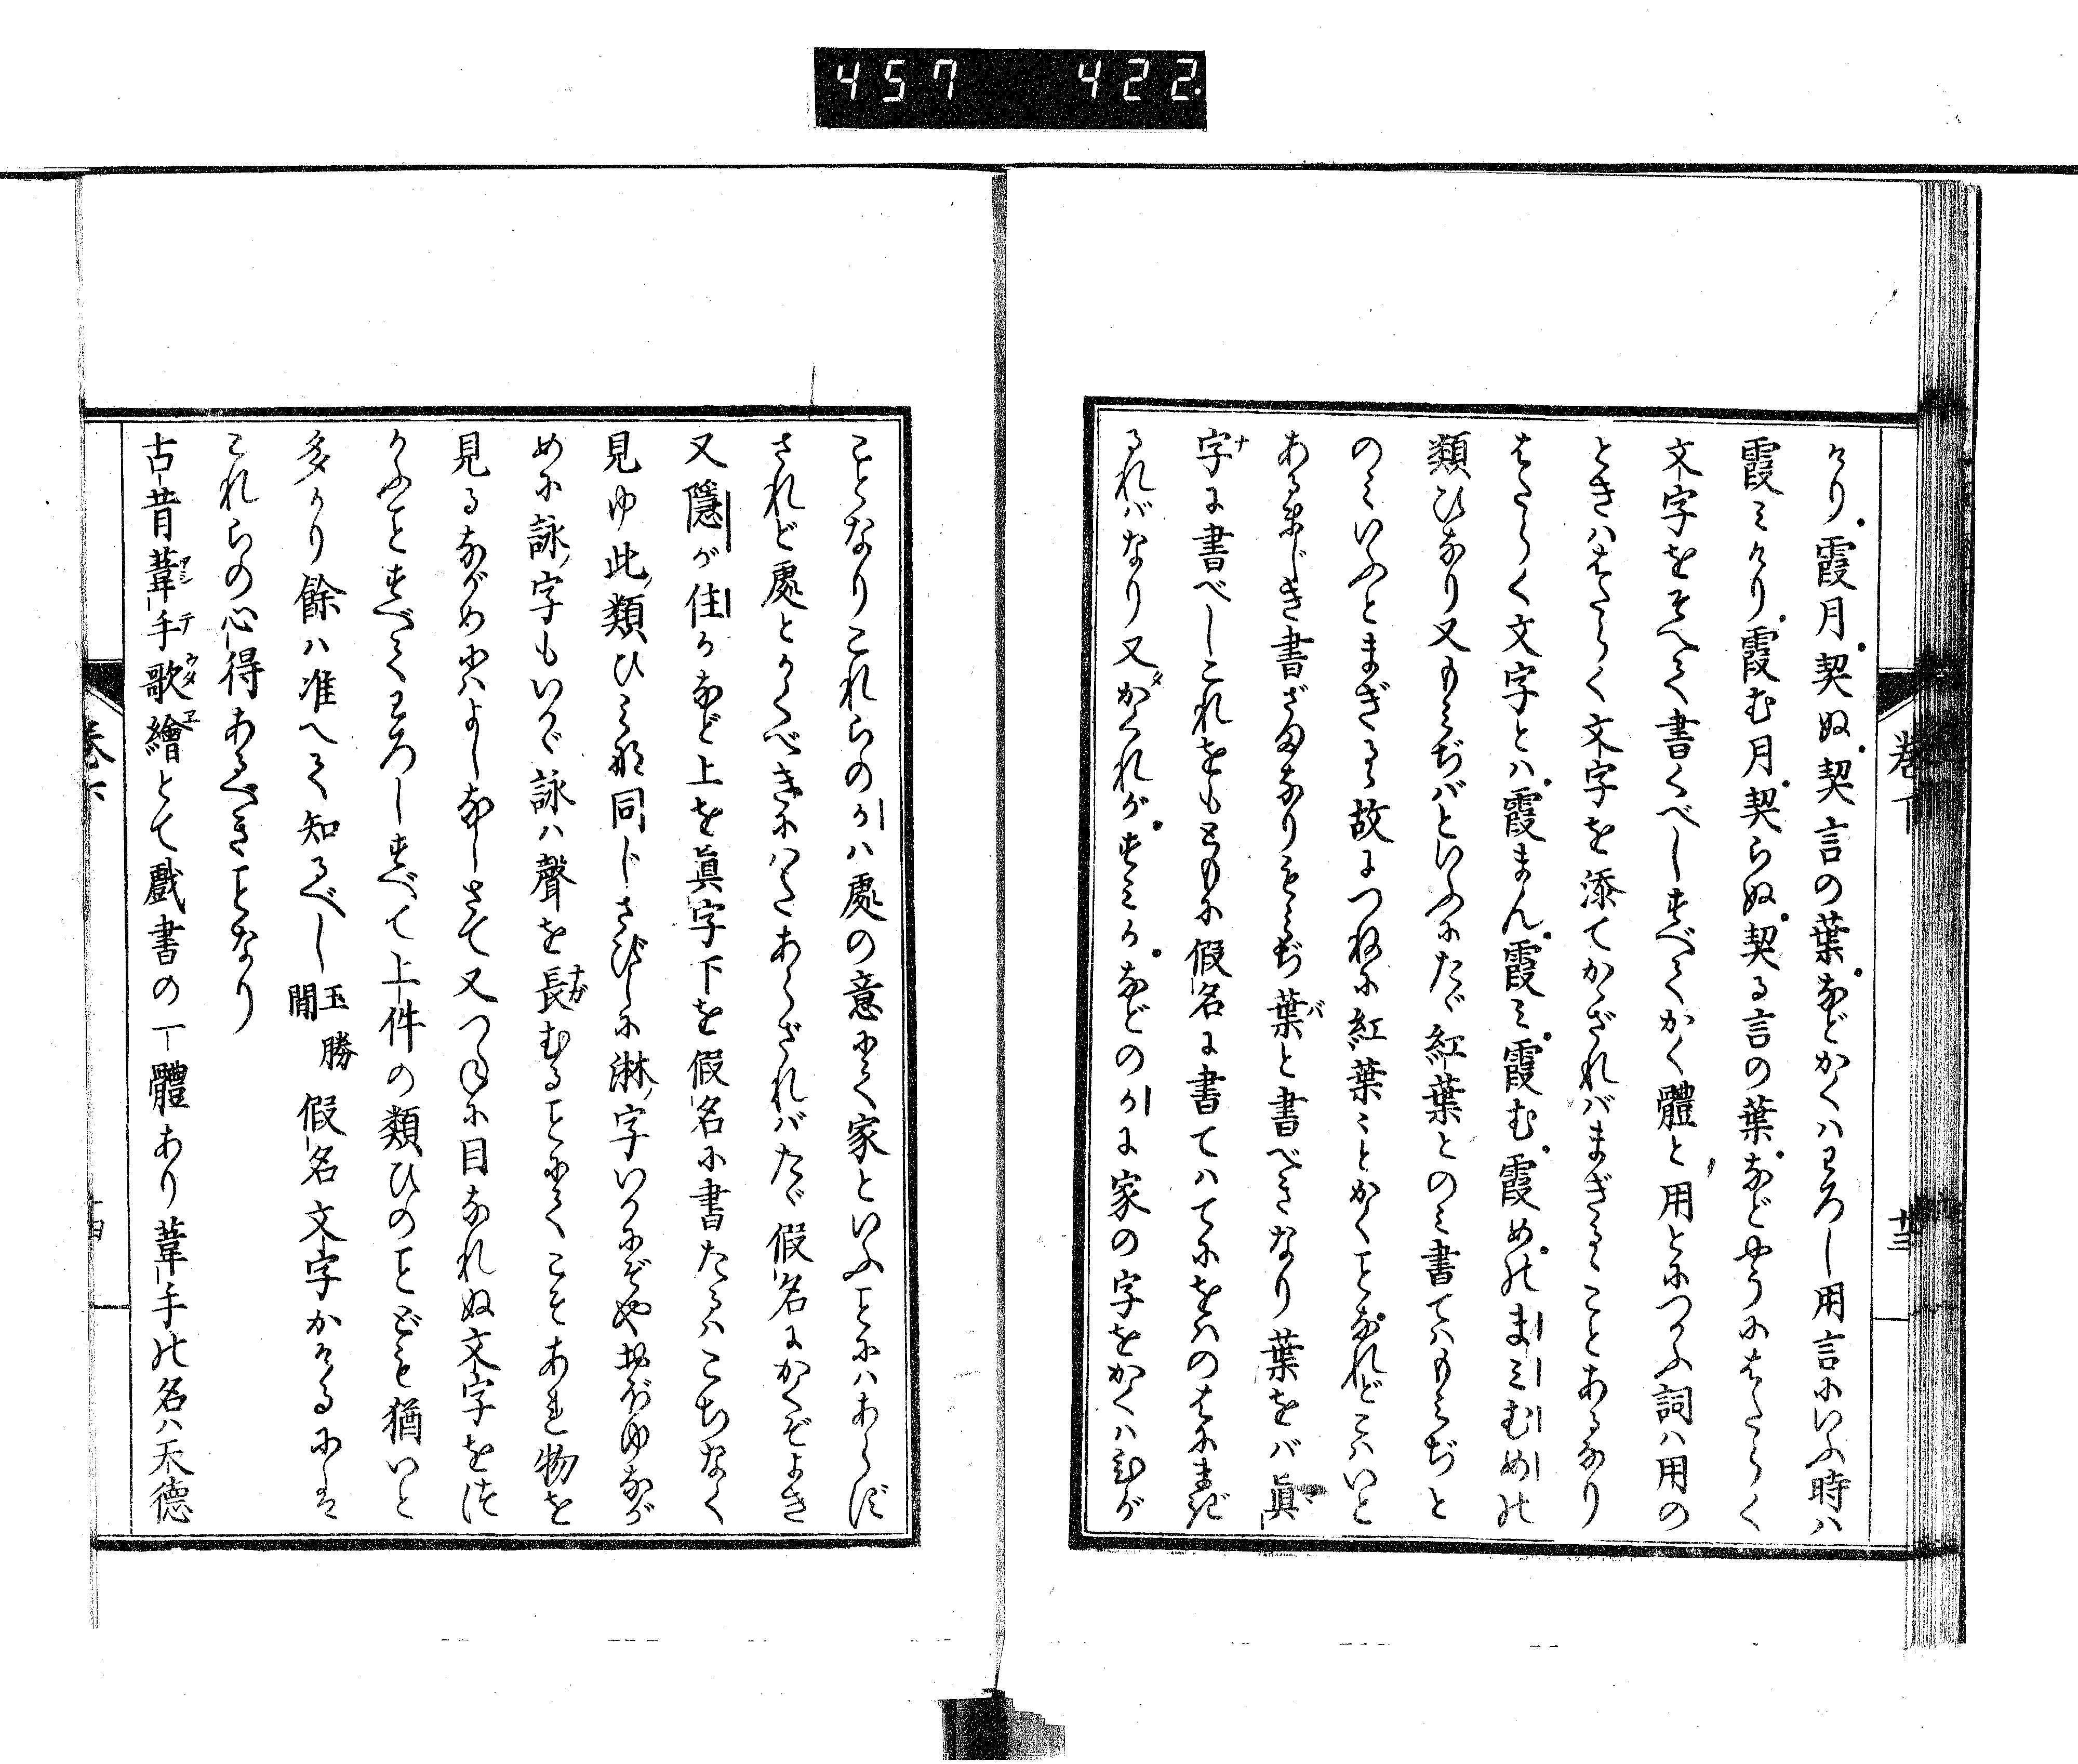 457 422.
けり霞月契ぬ契言の葉などかくハわろし用言にいふ時ハ
霞ミけり霞む月契らぬ契る言の葉などやうにはたらく
文字をそへて書くべしすべてかく體と用とにつかふ詞ハ用の
ときハはたらく文字を添てかゝざれバまぎるゝことあるなり
はたらく文字とハ霞まん霞ミ霞む霞めのまミむめの
類ひなり又もみぢバといふにたゞ紅葉とのミ書てハもみぢと
のミいふとまぎるゝ故につねに紅葉ゝとかくことなれどこハいと
あるまじき書ざまなりもみぢ葉と書べきなり葉をバ眞
字に書べしこれをもともに假名に書てハてにをハのはにまぎ
るれバなり又かくれがすミかなどのかに家の字をかくハひが
ことなりこれらのかハ處の意にて家といふことにハあらず
されど處とかくべきにハたあらざれバたゞ假名にかくぞよき
又隱が住かなど上を眞字下を假名に書たるハこちなく
見ゆ此類ひミな同じさびしに淋字いかにぞやおぼゆなが
めに詠字もいかゞ詠ハ聲を長むることにてこそあれ物を
見るながめにハよしなしさて又つねに目なれぬ文字をつ
かふことすべてわろしすべて上件の類ひのことども猶いと
多かり餘ハ准へて知るべし玉勝間假名文字かけるにも
これらの心得あるべきことなり
古昔葦手歌繪とて戲書の一體あり葦手の名ハ天德
卷下
十三